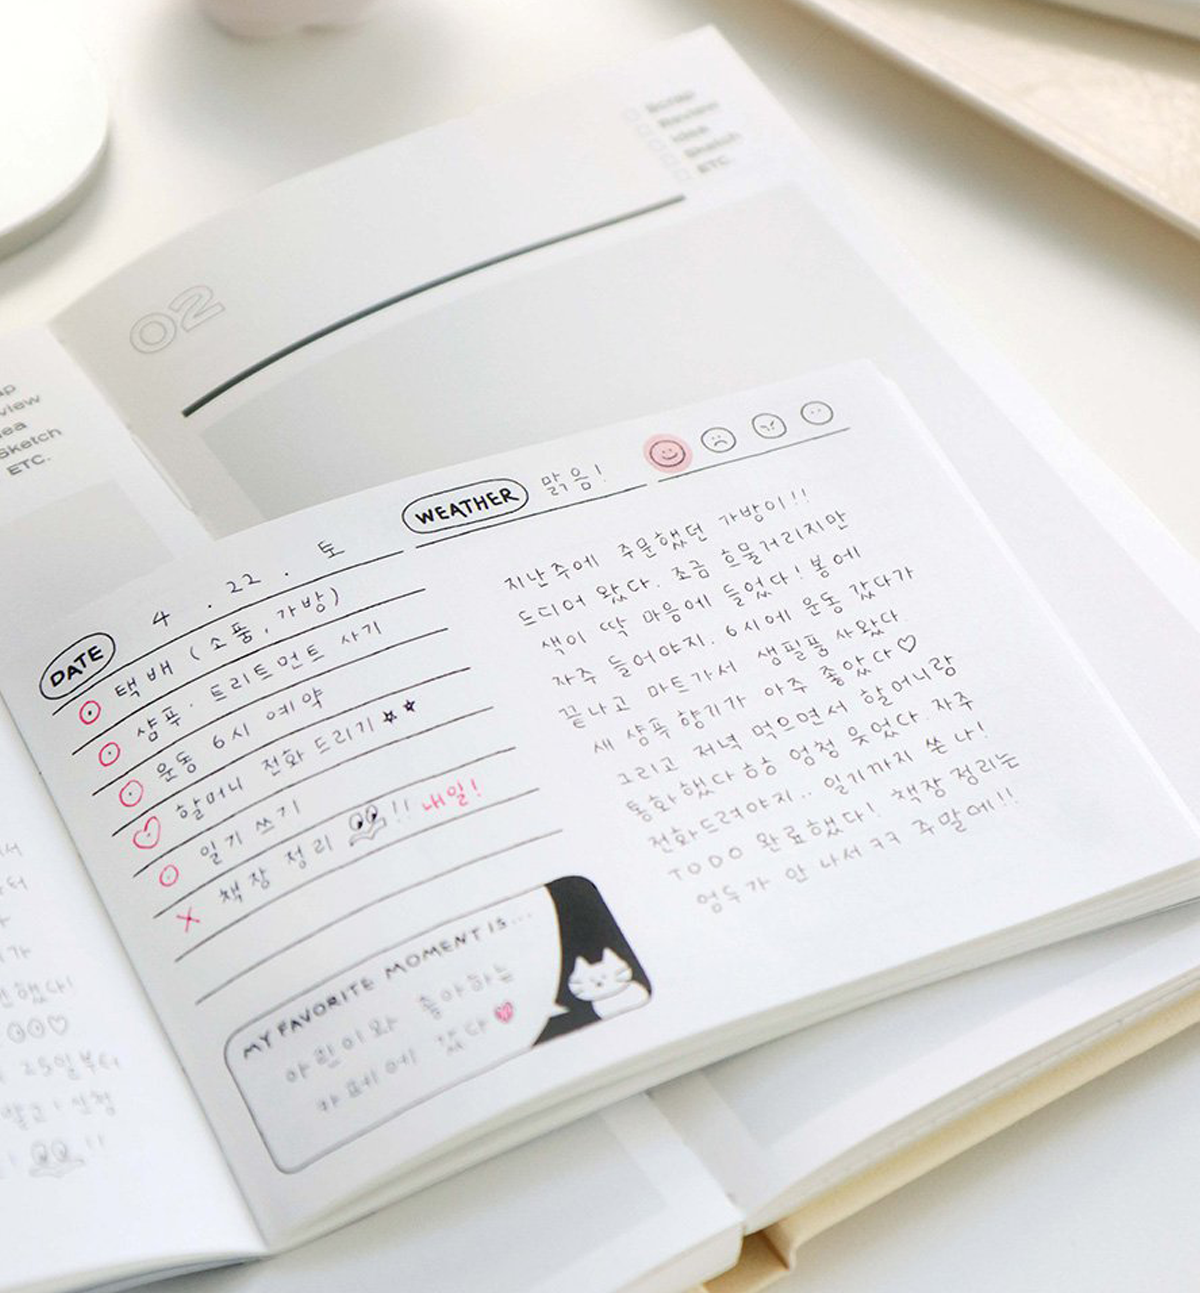 Scrap
Review
Idea
Sketch
ETC.
02
view
Sketch
ETC.
DATE 4 . 22 . 토
WEATHER 맑음!
택배 (소품, 가방)
샴푸·트리트먼트 사기
운동 6시 예약
할머니 전화 드리기
일기 쓰기
책장 정리 !! 내일!
MY FAVORITE MOMENT IS...
아린이와 좋아하는
카페에 갔다
지난주에 주문했던 가방이!!
드디어 왔다. 조금 흐물거리지만
색이 딱 마음에 들었다! 봄에
자주 들어야지. 6시에 운동 갔다가
끝나고 마트가서 생필품 사왔다
새 샴푸 향기가 아주 좋았다♡
그리고 저녁 먹으면서 할머니랑
통화했다 ㅎㅎ 엄청 웃었다. 자주
전화드려야지.. 일기까지 쓴 나!
TODO 완료했다! 책장 정리는
엄두가 안 나서 ㅋㅋ 주말에!!
25일부터